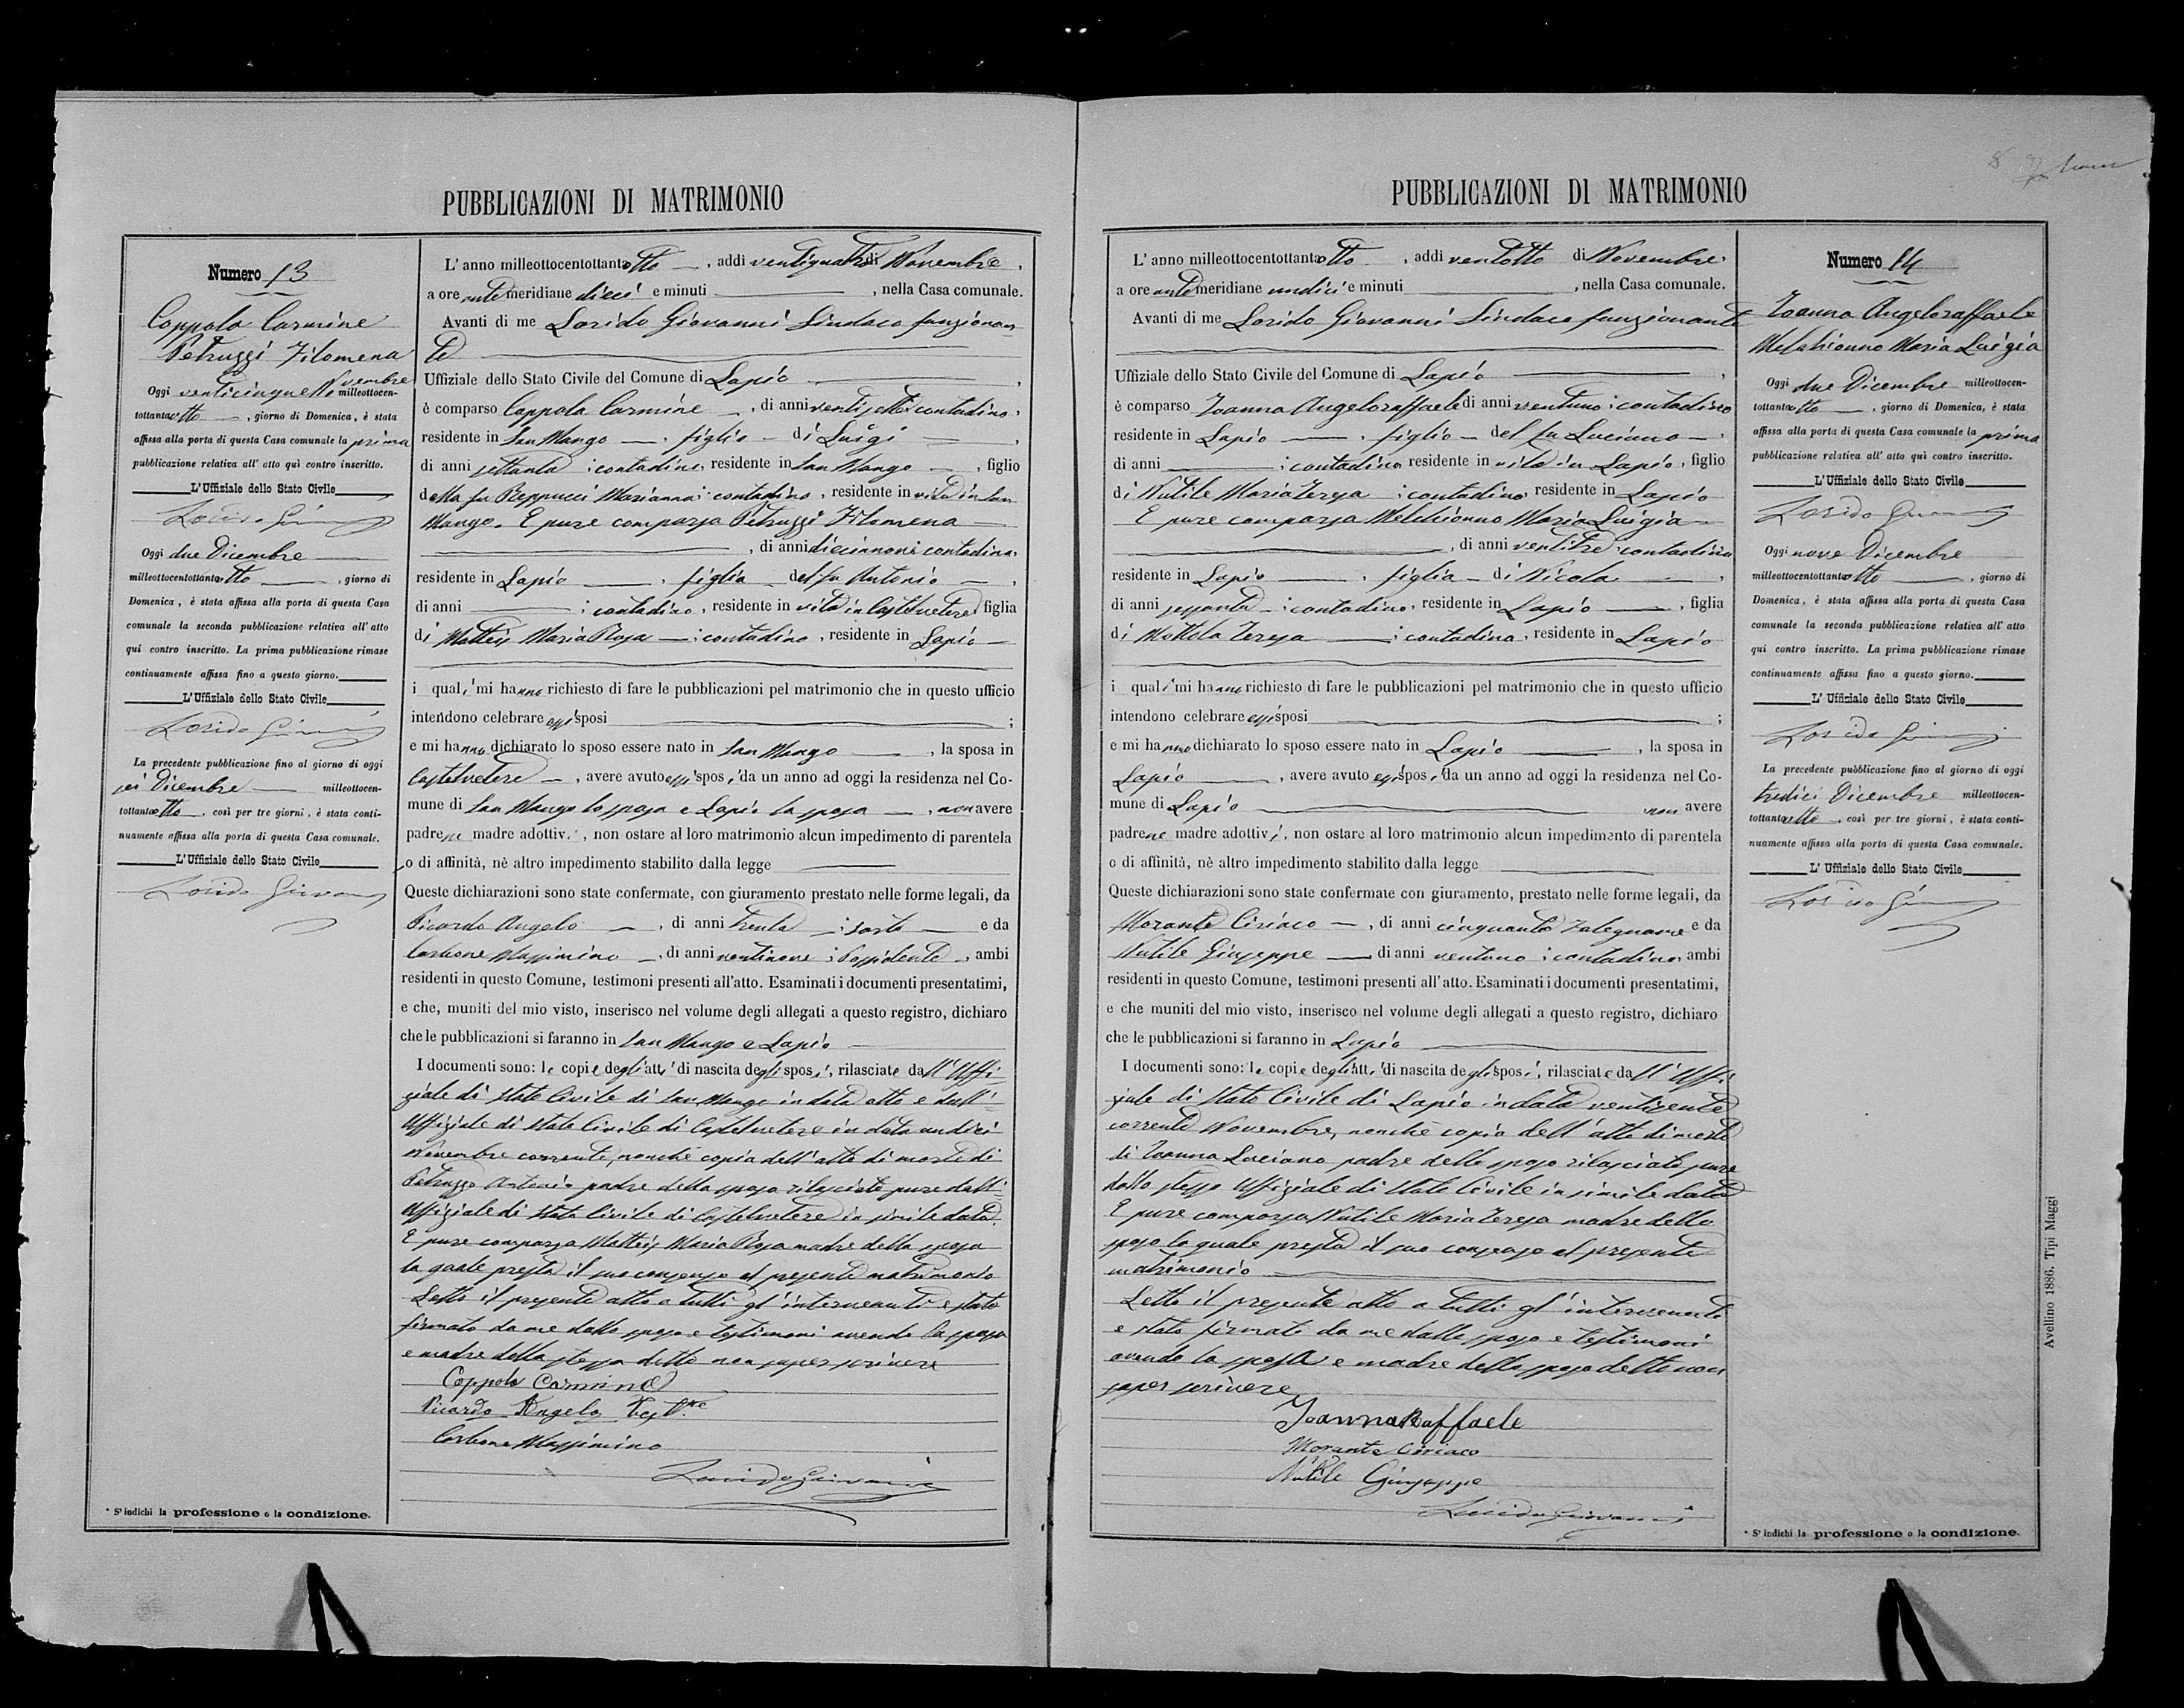 PUBBLICAZIONI DI MATRIMONIO
Numero 13
Coppola Carmine
Petruzzi Filomena
Oggi venticinque Novembre milleottocen-
tottantaotto, giorno di Domenica, è stata
affissa alla porta di questa Casa comunale la prima
pubblicazione relativa all' atto quì contro inscritto.
L'Uffiziale dello Stato Civile
Oggi due Dicembre
milleottocentottantaotto, giorno di
Domenica, è stata affissa alla porta di questa Casa
comunale la seconda pubblicazione relativa all' atto
qui contro inscritto. La prima pubblicazione rimase
continuamente affissa fino a questo giorno.
L'Uffiziale dello Stato Civile
La precedente pubblicazione fino al giorno di oggi
sei Dicembre milleottocen-
tottantaotto, così per tre giorni, è stata conti-
nuamente affissa alla porta di questa Casa comunale.
L'Uffiziale dello Stato Civile
* S' indichi la professione o la condizione.
L' anno milleottocentottantaotto, addì ventiquattro di Novembre,
a ore antemeridiane dieci e minuti, nella Casa comunale.
Avanti di me Lorido Giovanni Sindaco funzionan
te
Uffiziale dello Stato Civile del Comune di Lapio,
è comparso Coppola Carmine, di anni ventisette contadino,
residente in San Mango, figlio di Luigi,
di anni settanta; contadino, residente in San Mango, figlio
della fu Marianna; contadina, residente in vita in San
Mango. E pure comparsa Petruzzi Filomena
, di anni diecinnove contadina,
residente in Lapio, figlia del fu Antonio,
di anni; contadino, residente in vita in Castelvetere, figlia
di Matteis Maria Rosa; contadina, residente in Lapio
i quali mi hanno richiesto di fare le pubblicazioni pel matrimonio che in questo ufficio
intendono celebrare essi sposi;
e mi hanno dichiarato lo sposo essere nato in San Mango, la sposa in
Castelvetere, avere avuto essi sposi da un anno ad oggi la residenza nel Co-
mune di San Mango lo sposo e Lapio la sposa, non avere
padre ne madre adottivi, non ostare al loro matrimonio alcun impedimento di parentela
o di affinità, nè altro impedimento stabilito dalla legge
Queste dichiarazioni sono state confermate, con giuramento prestato nelle forme legali, da
Picardo Angelo, di anni trenta; sarto e da
Carbone Massimino, di anni ventinove; Possidente, ambi
residenti in questo Comune, testimoni presenti all'atto. Esaminati i documenti presentatimi,
e che, muniti del mio visto, inserisco nel volume degli allegati a questo registro, dichiaro
che le pubblicazioni si faranno in San Mango e Lapio
I documenti sono: le copie degli atti di nascita degli sposi, rilasciate dall' Uffi-
ziale di Stato Civile di San Mango in data otto e dall'
Uffiziale di Stato Civile di Castelvetere in data undici
Novembre corrente, nonchè copia dell' atto di morte di
Petruzzo Antonio padre della sposa rilasciato pure dall'
Uffiziale di Stato Civile di Castelvetere in simile data.
E pure comparsa Matteis Maria Rosa madre della sposa
la quale presta il suo consenso al presente matrimonio
Letto il presente atto a tutti gl' intervenuti è stato
firmato da me dallo sposo e testimoni avendo la sposa
e madre della stessa detto non saper scrivere
Coppola Carmine
Picardo Angelo
Carbone Massimino
PUBBLICAZIONI DI MATRIMONIO
L' anno milleottocentottantaotto, addì ventotto di Novembre,
a ore antemeridiane undici e minuti, nella Casa comunale.
Avanti di me Lorido Giovanni Sindaco funzionante
Uffiziale dello Stato Civile del Comune di Lapio,
è comparso Ioanna Angeloraffaele di anni ventuno; contadino
residente in Lapio, figlio del fu Luciano,
di anni; contadino residente in vita in Lapio, figlio
di Nutile Maria Teresa; contadina residente in Lapio
E pure comparsa Melchionno Maria Luigia
, di anni ventitre contadina
residente in Lapio, figlia di Nicola,
di anni sessanta; contadino, residente in Lapio, figlia
di Mottola Teresa; contadina, residente in Lapio
i quali mi hanno richiesto di fare le pubblicazioni pel matrimonio che in questo ufficio
intendono celebrare essi sposi;
e mi hanno dichiarato lo sposo essere nato in Lapio, la sposa in
Lapio, avere avuto essi sposi da un anno ad oggi la residenza nel Co-
mune di Lapio non avere
padre ne madre adottivi, non ostare al loro matrimonio alcun impedimento di parentela
o di affinità, nè altro impedimento stabilito dalla legge
Queste dichiarazioni sono state confermate con giuramento, prestato nelle forme legali, da
Morante Ciriaco, di anni cinquanta Falegname e da
Nutile Giuseppe di anni ventuno; contadino, ambi
residenti in questo Comune, testimoni presenti all' atto. Esaminati i documenti presentatimi,
e che muniti del mio visto, inserisco nel volume degli allegati a questo registro, dichiaro
che le pubblicazioni si faranno in Lapio
I documenti sono: le copie degli atti di nascita degli sposi, rilasciate dall' Uffi-
ziale di Stato Civile di Lapio in data
corrente Novembre, nonchè copia dell' atto di morte
di Ioanna Luciano padre dello sposo rilasciato pure
dallo stesso Uffiziale di Stato Civile in simile data
E pure comparsa Nutile Maria Teresa madre dello
sposo la quale presta il suo consenso al presente
matrimonio
Letto il presente atto a tutti gl' intervenuti
è stato firmato da me dallo sposo e testimoni
avendo la sposa e madre dello sposo detto non
saper scrivere
Ioanna Raffaele
Morante Ciriaco
Nutile Giuseppe
Numero 14
Ioanna Angeloraffaele
Melchionno Maria Luigia
Oggi due Dicembre milleottocen-
tottantaotto, giorno di Domenica, è stata
affissa alla porta di questa Casa comunale la prima
pubblicazione relativa all' atto quì contro inscritto.
L'Uffiziale dello Stato Civile
Oggi nove Dicembre
milleottocentottantaotto, giorno di
Domenica, è stata affissa alla porta di questa Casa
comunale la seconda pubblicazione relativa all' atto
qui contro inscritto. La prima pubblicazione rimase
continuamente affissa fino a questo giorno.
L' Uffiziale dello Stato Civile
La precedente pubblicazione fino al giorno di oggi
tredici Dicembre milleottocen-
tottantaotto, così per tre giorni, è stata conti-
nuamente affissa alla porta di questa Casa comunale.
L' Uffiziale dello Stato Civile
* S' indichi la professione o la condizione.
Avellino 1886. Tipi Maggi